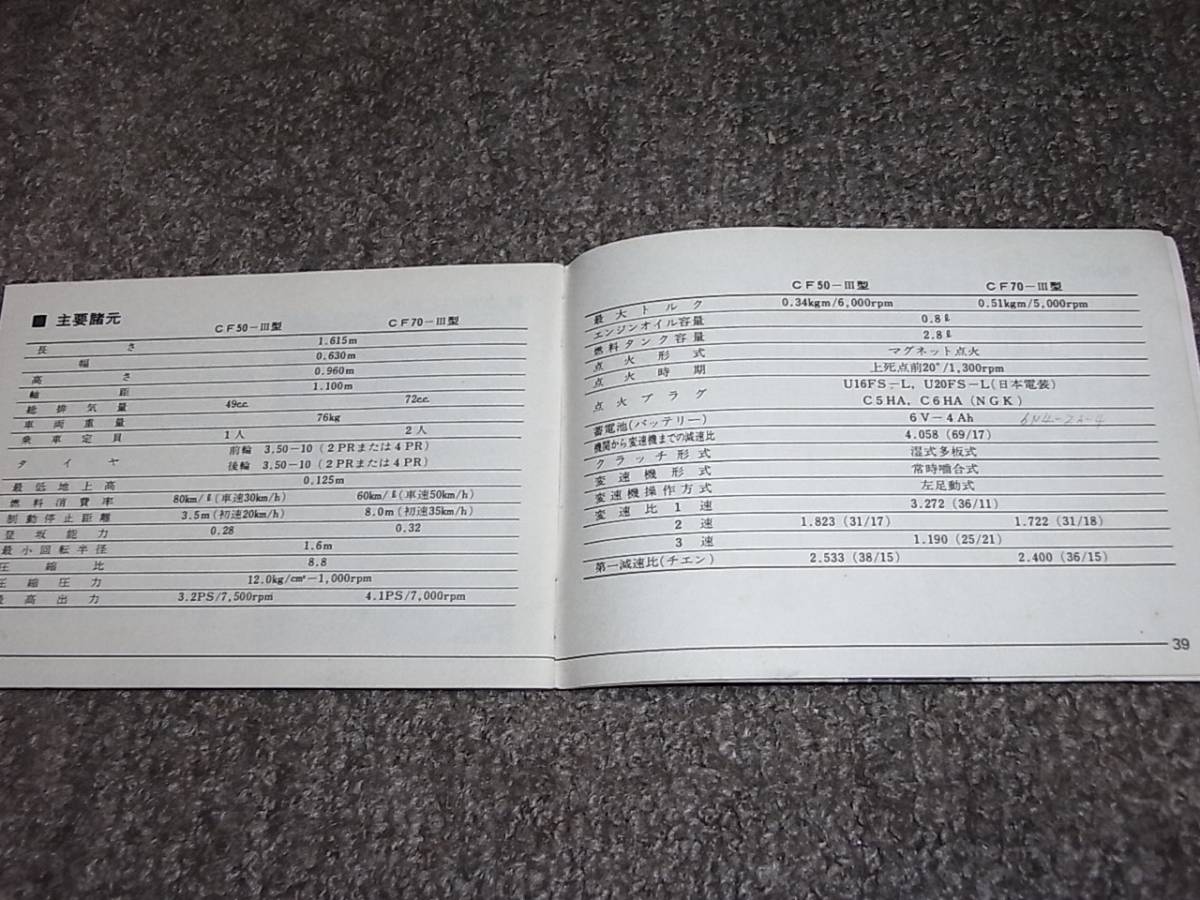 ■ 主要諸元
CF50-III型 CF70-III型
長さ 1.615m
幅 0.630m
高さ 0.960m
軸距 1.100m
総排気量 49cc 72cc
車両重量 76kg
乗車定員 1人 2人
タイヤ 前輪 3.50-10（2PRまたは4PR）
後輪 3.50-10（2PRまたは4PR）
最低地上高 0.125m
燃料消費率 80km/ℓ（車速30km/h） 60km/ℓ（車速50km/h）
制動停止距離 3.5m（初速20km/h） 8.0m（初速35km/h）
登坂能力 0.28 0.32
最小回転半径 1.6m
圧縮比 8.8
圧縮圧力 12.0kg/cm²-1,000rpm
最高出力 3.2PS/7,500rpm 4.1PS/7,000rpm
CF50-III型 CF70-III型
最大トルク 0.34kgm/6,000rpm 0.51kgm/5,000rpm
エンジンオイル容量 0.8ℓ
燃料タンク容量 2.8ℓ
点火形式 マグネット点火
点火時期 上死点前20°/1,300rpm
点火プラグ U16FS-L，U20FS-L（日本電装）
C5HA，C6HA（NGK）
蓄電池（バッテリー） 6V-4Ah
機関から変速機までの減速比 4.058（69/17）
クラッチ形式 湿式多板式
変速機形式 常時噛合式
変速機操作方式 左足動式
変速比 1速 3.272（36/11）
2速 1.823（31/17） 1.722（31/18）
3速 1.190（25/21）
第一減速比（チエン） 2.533（38/15） 2.400（36/15）
39